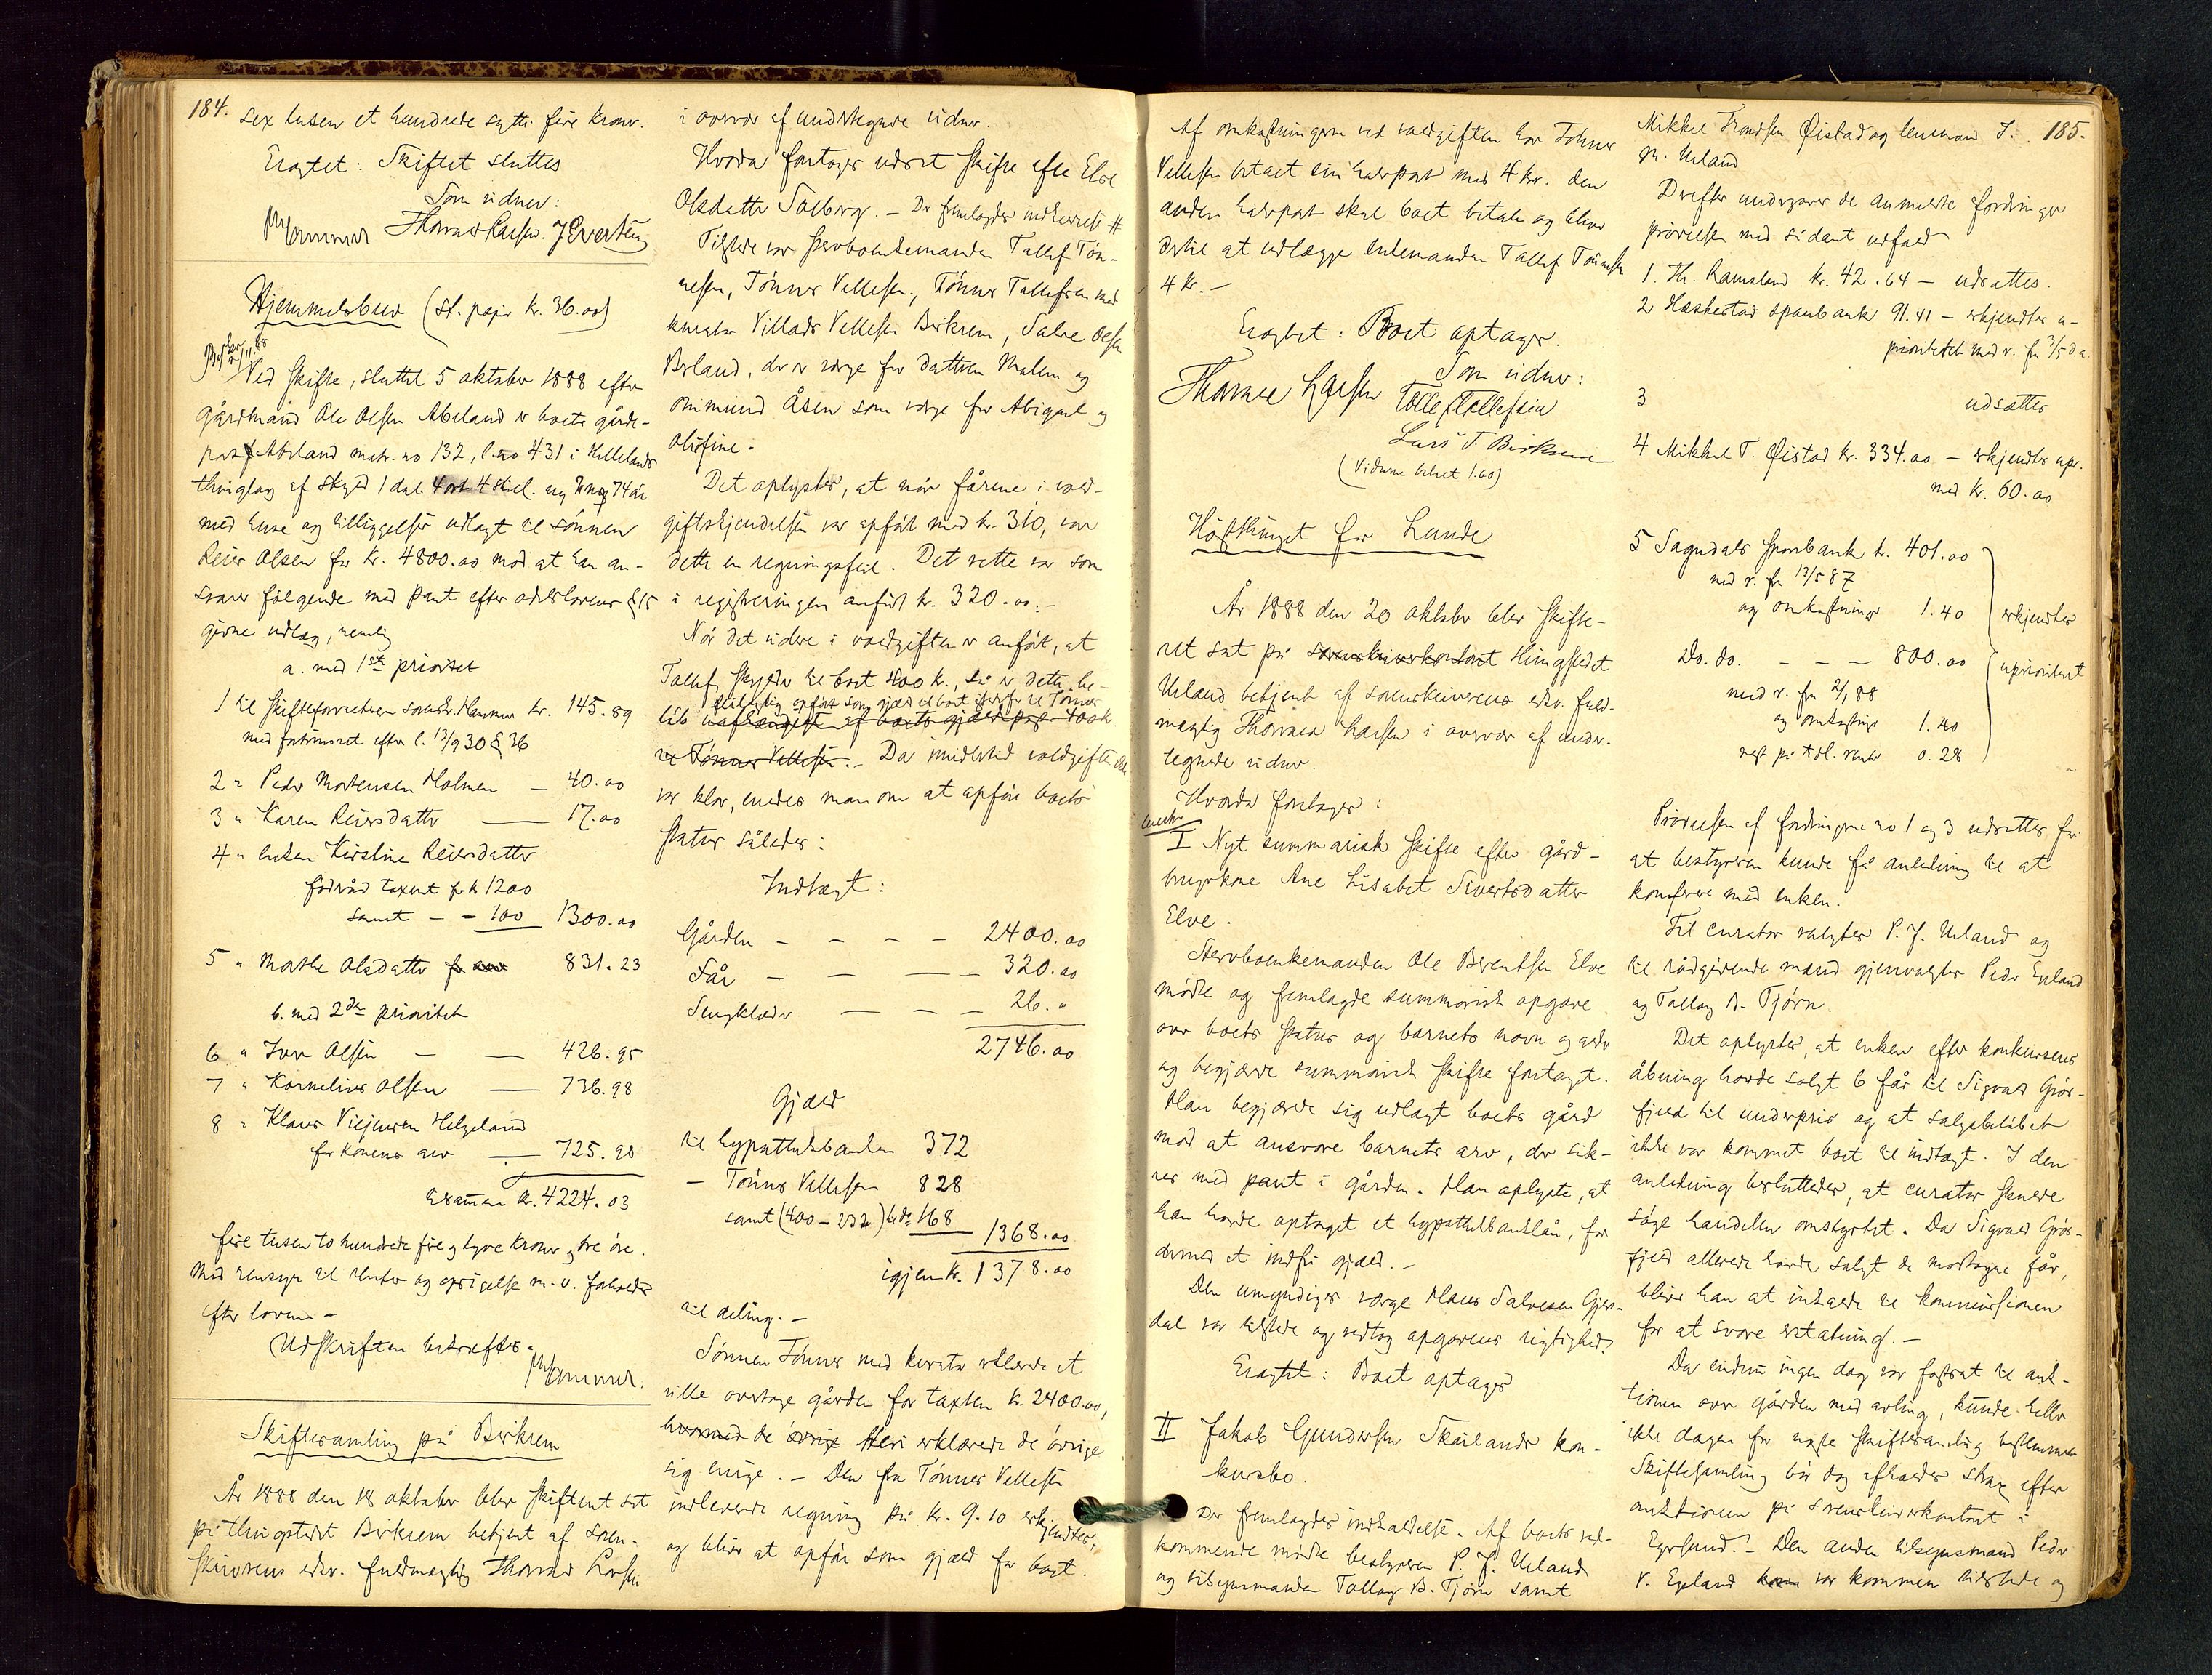 184.
sex tusen et hundrede sytti fire kroner.
Eragtet: Skiftet sluttes
Som vidner:
Hammer Thomas Larsen. J Evertsen
Hjemmelsbrev (st. papir kr. 36.00)
Ved skifte, sluttet 5 oktober 1888 efter
gårdmand Ole Olsen Abeland er boets gårde-
part Abeland matr. no 132, l.no 431 i Hellelands
thinglag af skyld 1 dal. 4 ort 4 skil. ny 2 mrk 74 øre
med huse og tilliggelser udlagt til sønnen
Reier Olsen for kr. 4800.00 mod at han an-
svarer følgende med pant efter odelslovens § 15
givne udlæg, nemlig
a. med 1ste prioritet
1 til skifteforvalteren sorenskr. Hammer kr. 145.89
med fortrinsret efter l. 13/9 30 § 36
2 " Peder Mortensen Holmen — 40.00
3 " Karen Reiersdatter — 17.00
4 " enken Kirstine Reiersdatter
føderåd taxeret for kr 1200
samt — - 100 1300.00
5 " Marthe Olsdatter 831.23
b. med 2den prioritet
6 " Iver Olsen — — 426.95
7 " Kornelius Olsen — 736.98
8 " Klaus Helgeland
for konens arv — 725.98
tilsammen kr. 4224.03
fire tusen to hundrede fire og tyve kroner og tre øre.
Med hensyn til renter og opsigelse m. v. forholdes
efter loven. —
Udskriften bekræftes.
Hammer.
Skiftesamling på Birkrem
År 1888 den 18 oktober blev skifteret sat
på thingstedet Birkrem betjent af soren-
skriverens edsv. fuldmægtig Thomas Larsen
i overvær af undertegnede vidner.
Hvorda foretages udsat skifte efter Else
Olsdatter Solberg. — Der fremlagdes indkaldelse #
Tilstede var stervboenkemanden Tallef Tøn-
nesen, Tønnes Vellesen, Tønnes Tallefsen med
kurator Villads Vellesen Birkrem, Salve Olsen
Birland, der er værge for datteren Malene og
Omund Åsen som værge for Abigael og
Olufine.
Det oplystes, at når fårene i vold-
giftskjendelsen var opført med kr. 310, var
dette en regningsfeil. Det rette var som
i registreringen anført kr. 320.00. —
Når det videre i voldgiften er anført, at
Tallef skylder til boet 400 k., så er dette be-
løb
til Tønnes Vellesen. — Da imidlertid voldgiften ikke
var klar, enedes man om at opføre boets
status således:
Indtægt:
Gården — — — — 2400.00
Får — — — — 320.00
Sengklæder — — — 26. "
2746.00
Gjæld
til hypothekbanken 372
— Tønnes Vellesen 828
samt (400 — 232) 168 1368.00
igjen kr. 1378.00
til deling. —
Sønnen Tønnes med kurator erklærede at
ville overtage gården for taxten kr. 2400.00,
hvormed de øvrige Heri erklærede de øvrige
sig enige. — Den fra Tønnes Vellesen
indleverede regning på kr. 9.10 erkjendtes,
og bliver at opføre som gjæld for boet.
Af omkostningerne ved voldgiften har Tønnes
Vellesen betalt sin halvpart med 4 kr. den
anden halvpart skal boet betale og bliver
dertil at udlægge enkemanden Tallef Tønnesen
4 kr. —
Eragtet: Boet optages.
Som vidner:
Thomas Larsen Tolle Tollefsen
Lars T. Birkrem
(Vidnerne betalt 1.60)
Høstthinget for Lunde
År 1888 den 20 oktober blev skifte-
ret sat på sorenskriverkontoret thingstedet
Ueland betjent af sorenskriverens edsv. fuld-
mægtig Thomas Larsen i overvær af under-
tegnede vidner.
Hvorda foretages:
I Nyt summarisk skifte efter gård-
brugerkone Ane Lisabet Sivertsdatter
Elve.
Stervboenkemanden Ole Berentsen Elve
mødte og fremlagde summarisk opgave
over boets status og barnets navn og alder
og begjærede summarisk skifte foretaget.
Han begjærede sig udlagt boets gård
mod at ansvare barnets arv, der sik-
res med pant i gården. Han oplyste, at
han havde optaget et hypothekbanklån, for
dermed at indfri gjæld. —
Den umyndiges værge Hans Salvesen Gjer-
dal var tilstede og vedtog opgavens rigtighed.
Eragtet: Boet optages
II Jakob Gundersen Skailands kon-
kursbo.
Der fremlagdes indkaldelse. Af boets ved-
kommende mødte bestyreren P. J. Ueland
og tilsynsmanden Tallag B. Tjørn samt
185.
Mikkel Trondsen Øistad og lensmand J.
M. Ueland
Derefter undergaves de anmeldte fordringer
prøvelse med sådant udfald
1. Th. Ramsland kr. 42.64 — udsattes.
2 Heskestad sparebank 91.41 — erkjendtes u-
prioritert med r. fra 3/5 d.a.
3 udsættes
4 Mikkel T. Øistad kr. 334.00 — erkjendtes upr.
med kr. 60.00
5 Sogndals sparebank kr. 401.00
med r. fra 13/5 87
og omkostninger 1.40 erkjendtes
Do. do. — — — 800.00 uprioritert
med r. fra 2/1 88
og omkostninger 1.40
rest på tidl. renter 0.28
Prøvelsen af fordringerne no 1 og 3 udsattes for
at bestyreren kunde få anledning til at
konferere med enken.
Til curator valgtes P. J. Ueland og
til rådgivende mænd gjenvalgtes Peder Egeland
og Tallag B. Tjørn.
Det oplystes, at enken efter konkursens
åbning havde solgt 6 får til Sigvald Grøs-
fjeld til underpris og at salgsbeløbet
ikke var kommet boet til indtægt. I den
anledning besluttedes, at curator skulde
søge handelen omstyrtet. Da Sigvald Grøs-
fjeld allerede havde solgt de modtagne får,
bliver han at indkalde til kommissionen
for at svare erstatning. —
Da endnu ingen dag var fastsat til auk-
tionen over gården med avling, kunde heller
ikke dagen for næste skiftesamling bestemmes
Skiftesamling bør dog afholdes strax efter
auktionen på sorenskriverkontoret i
Egersund. — Den anden tilsynsmand Peder
V. Egeland kom var kommen tilstede og